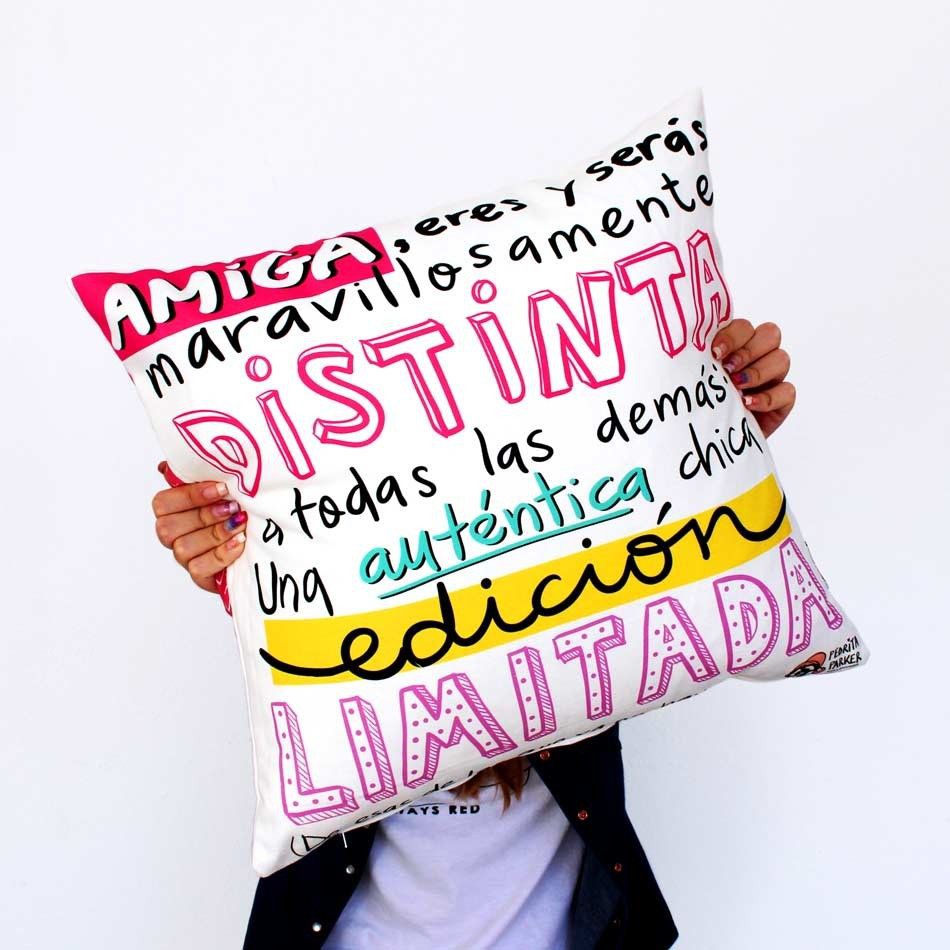 AMiGA, eres y serás
maravillosamente
DiSTiNTA
a todas las demás:
Una auténtica chica
edición
LIMITADA
PEDRITA
PARKER
esas de
WAYS RED